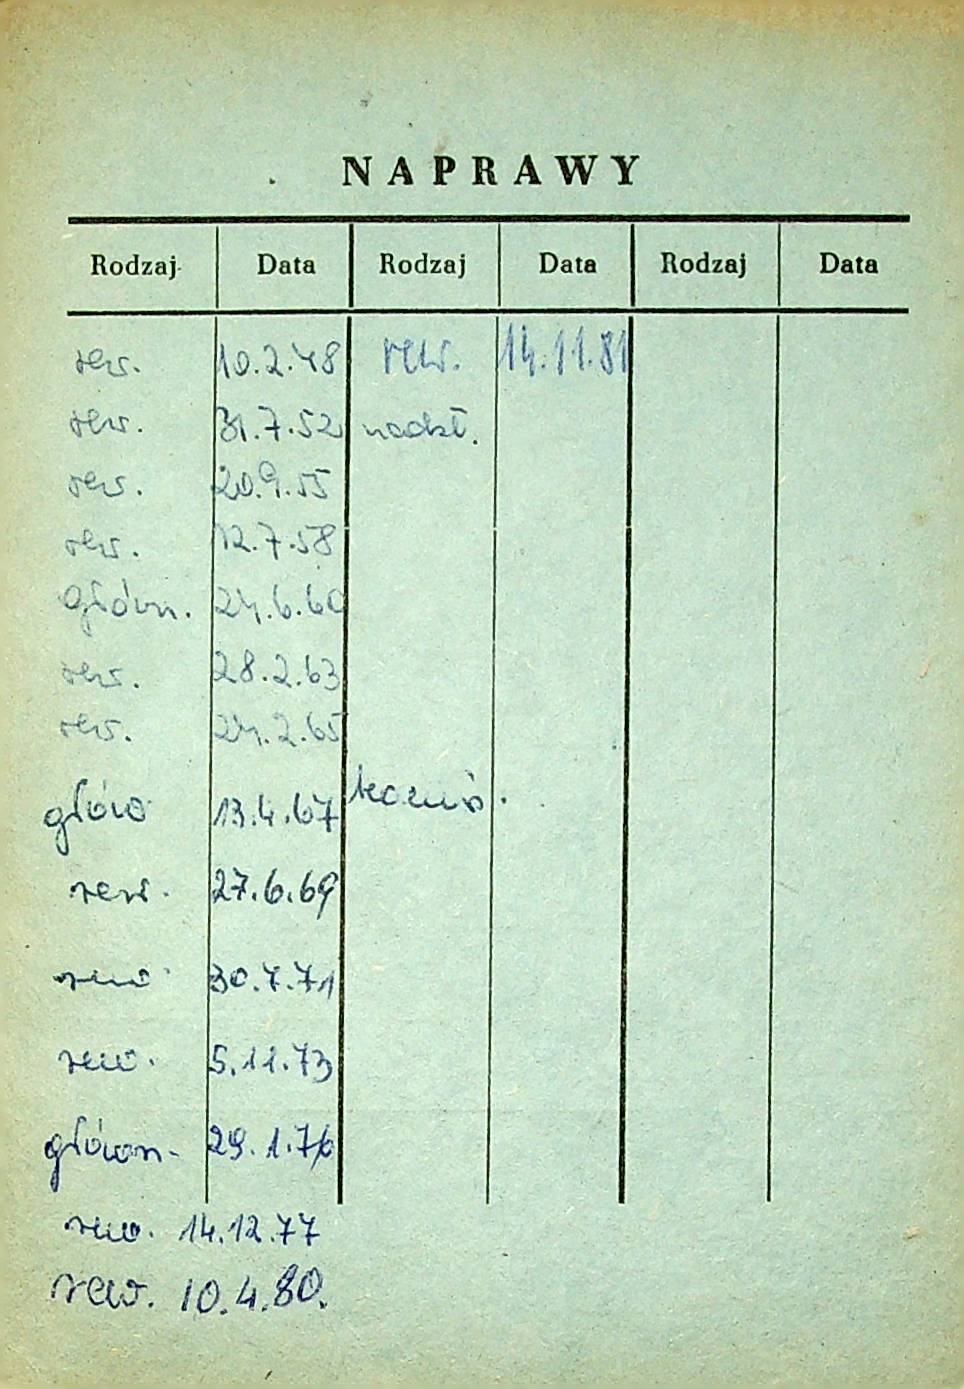 NAPRAWY
Rodzaj Data Rodzaj Data Rodzaj Data
rew. 10.2.48 rew. 14.11.81
rew. 31.7.52
rew. 20.9.55
rew. 12.7.58
główn. 24.6.60
rew. 28.2.63
rew. 24.2.65
główn 13.4.67
rew. 27.6.69
rew. 30.7.71
rew. 5.11.73
główn. 29.1.76
rew. 14.12.77
rew. 10.4.80.